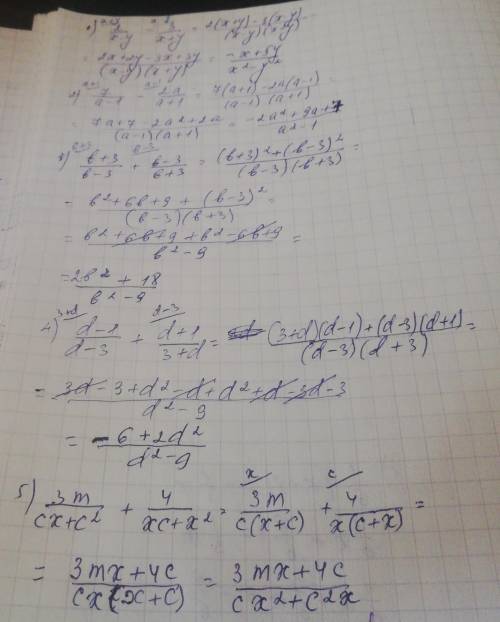 2/(x-y) - 3/(x+y) = (2(x+y)-3(x-y))/((x-y)(x+y)) =
= (2x+2y-3x+3y)/((x-y)(x+y)) = (-x+5y)/(x²-y²)
2) 7/(a-1) - 2a/(a+1) = (7(a+1)-2a(a-1))/((a-1)(a+1))
= (7a+7-2a²+2a)/((a-1)(a+1)) = (-2a²+9a+7)/(a²-1)
3) (b+3)/(b-3) + (b-3)/(b+3) = ((b+3)²+(b-3)²)/((b-3)(b+3)) =
= (b²+6b+9+(b-3)²)/((b-3)(b+3)) =
= (b²+6b+9+b²-6b+9)/(b²-9) =
= (2b²+18)/(b²-9)
4) (d-1)/(d-3) + (d+1)/(3+d) = ((3+d)(d-1)+(d-3)(d+1))/((d-3)(d+3)) =
= (3d-3+d²-d+d²+d-3d-3)/(d²-9)
= (-6+2d²)/(d²-9)
5) 3m/(cx+c²) + 4/(xc+x²) = 3m/(c(x+c)) + 4/(x(c+x)) =
= (3mx+4c)/(cx(x+c)) = (3mx+4c)/(cx²+c²x)